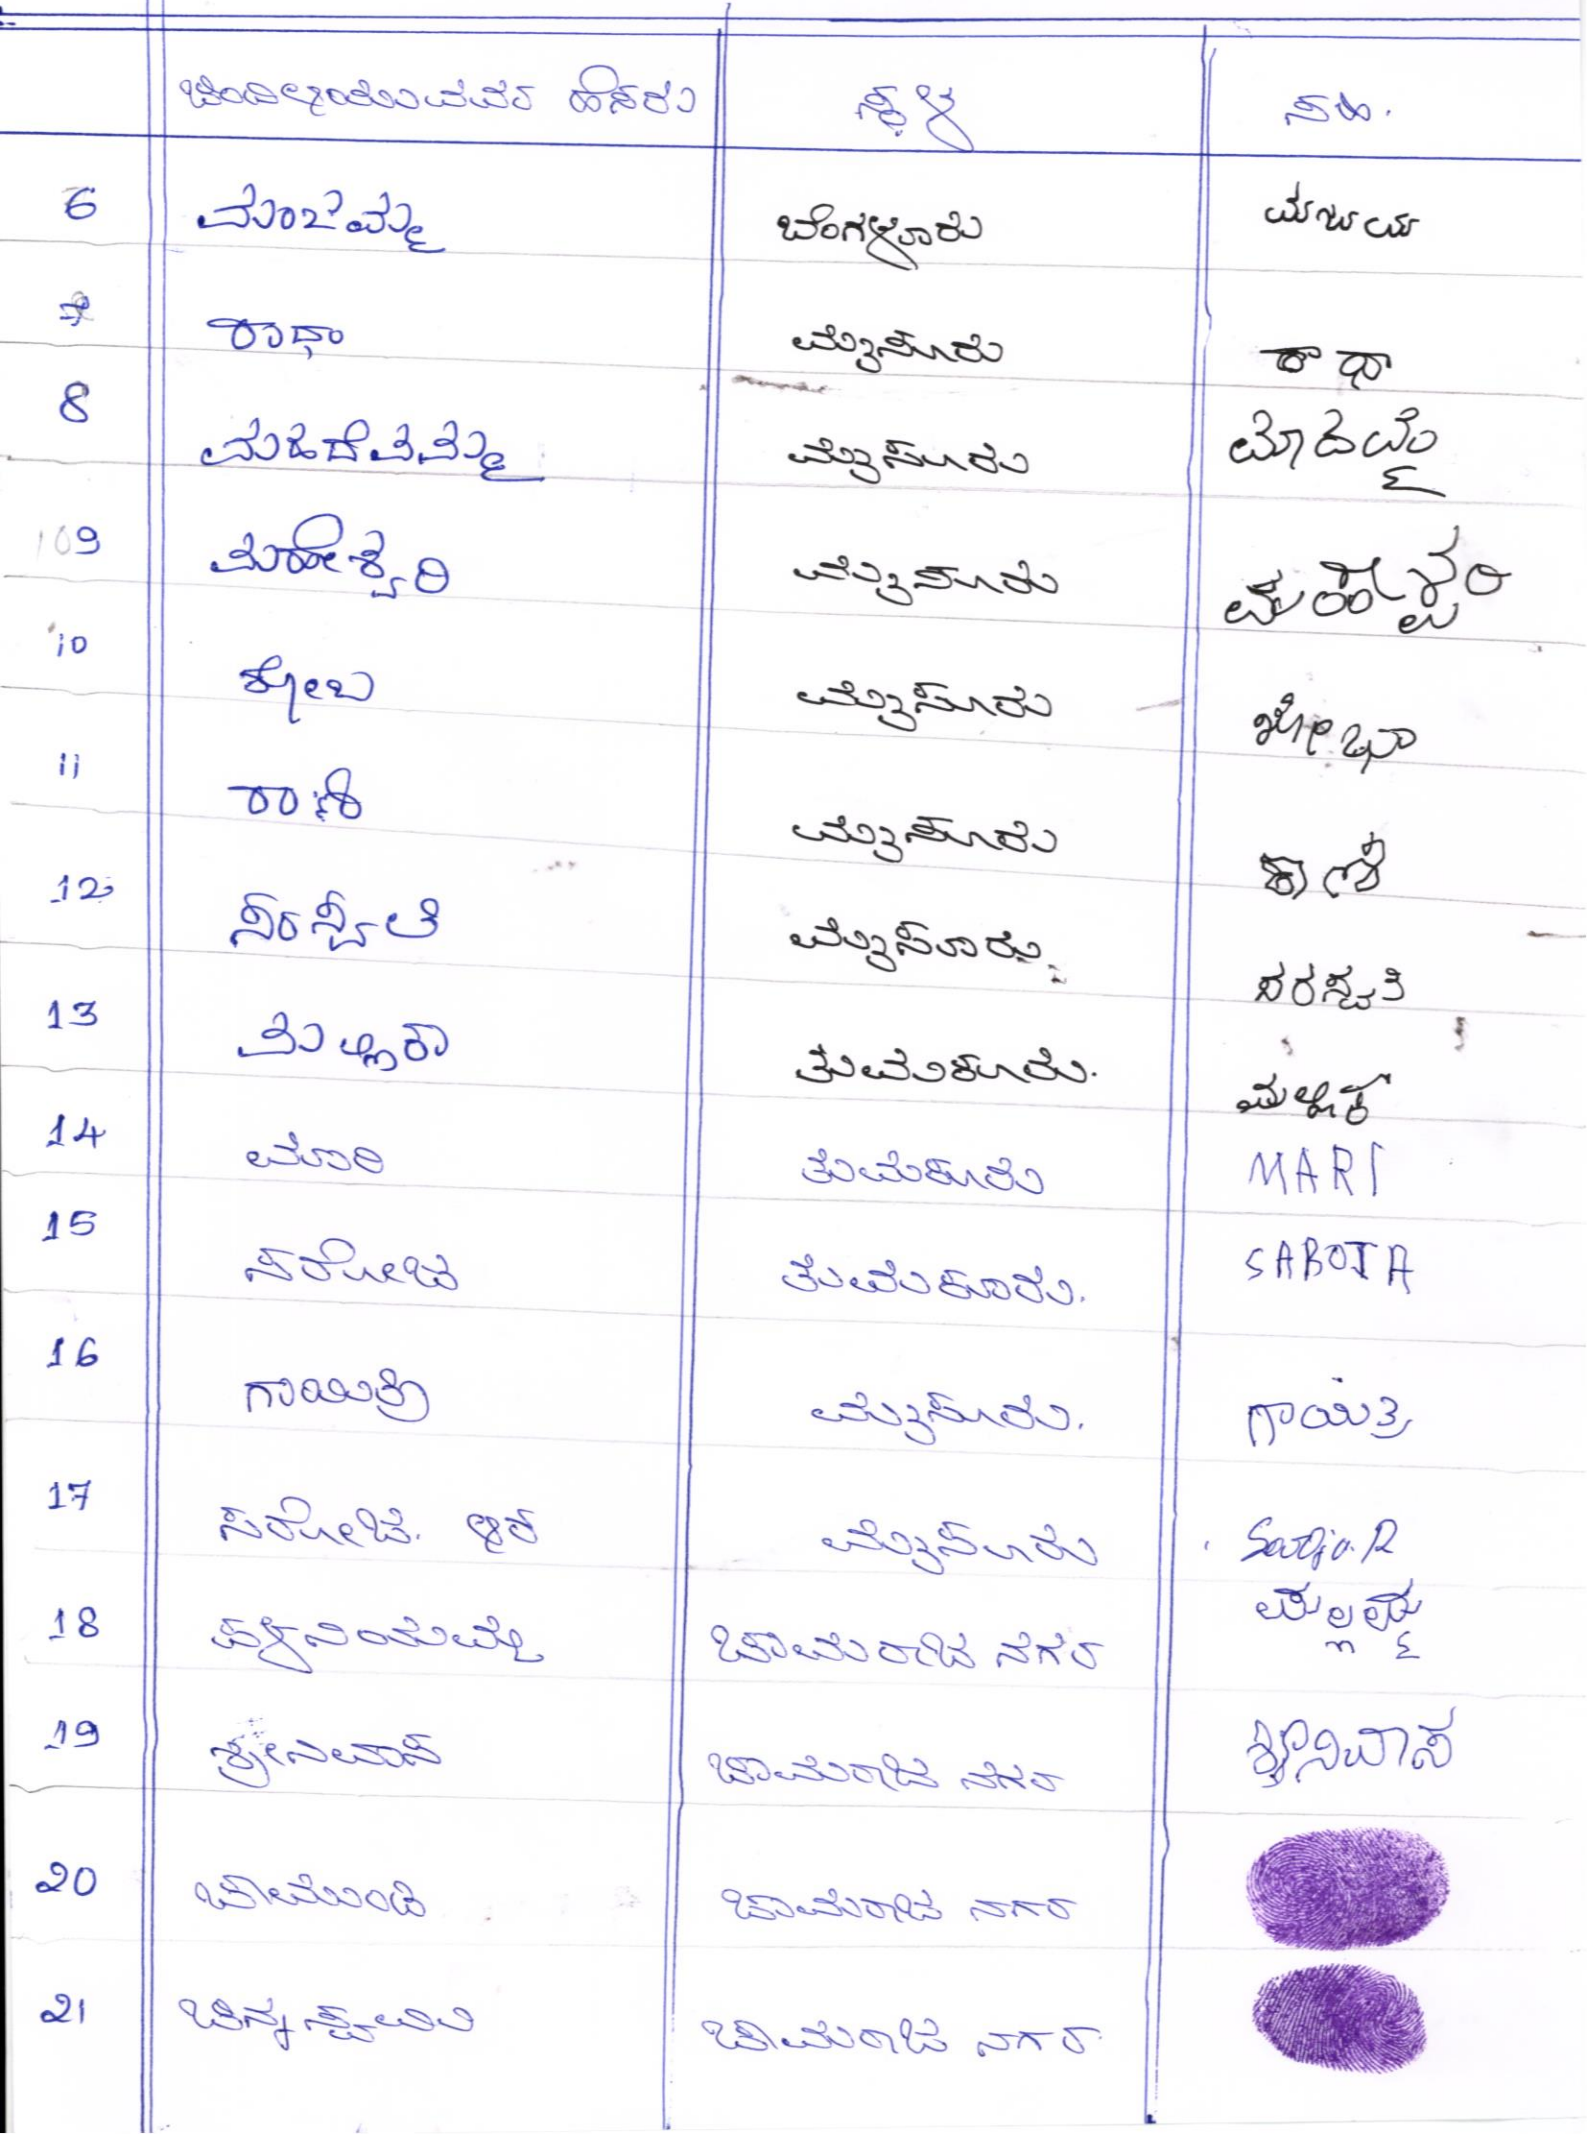 ಚಿಂದಿ ಆಯುವವರ ಹೆಸರು ಸ್ಥಳ ಸಹಿ.
6 ಮಂಜಮ್ಮ ಬೆಂಗಳೂರು
7 ರಾಧಾ ಮೈಸೂರು ರಾಧಾ
8 ಮಹದೇವಮ್ಮ ಮೈಸೂರು
9 ಮಹೇಶ್ವರಿ ಮೈಸೂರು
10 ಶೋಬ ಮೈಸೂರು ಶೋಭಾ
11 ರಾಣಿ ಮೈಸೂರು ರಾಣಿ
12 ಸರಸ್ವತಿ ಮೈಸೂರು ಸರಸ್ವತಿ
13 ಮಲ್ಲಿಕಾ ತುಮಕೂರು. ಮಲ್ಲಿಕ
14 ಮಾರಿ ತುಮಕೂರು MARI
15 ಸರೋಜ ತುಮಕೂರು. SAROJA
16 ಗಾಯಿತ್ರಿ ಮೈಸೂರು. ಗಾಯಿತ್ರಿ
17 ಸರೋಜ. ಆರ್ ಮೈಸೂರು Saroja.R
18 ಚಾಮರಾಜ ನಗರ
19 ಶ್ರೀನಿವಾಸ್ ಚಾಮರಾಜ ನಗರ ಶ್ರೀನಿವಾಸ
20 ಚಾಮುಂಡಿ ಚಾಮರಾಜ ನಗರ
21 ಚಿನ್ನಸ್ವಾಮಿ ಚಾಮರಾಜ ನಗರ